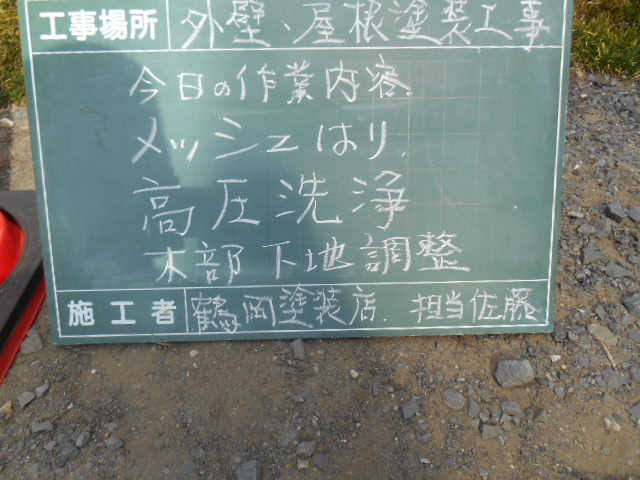 工事場所 外壁、屋根塗装工事
今日の作業内容
メッシュはり
高圧洗浄
木部下地調整
施工者 鶴岡塗装店. 担当佐藤